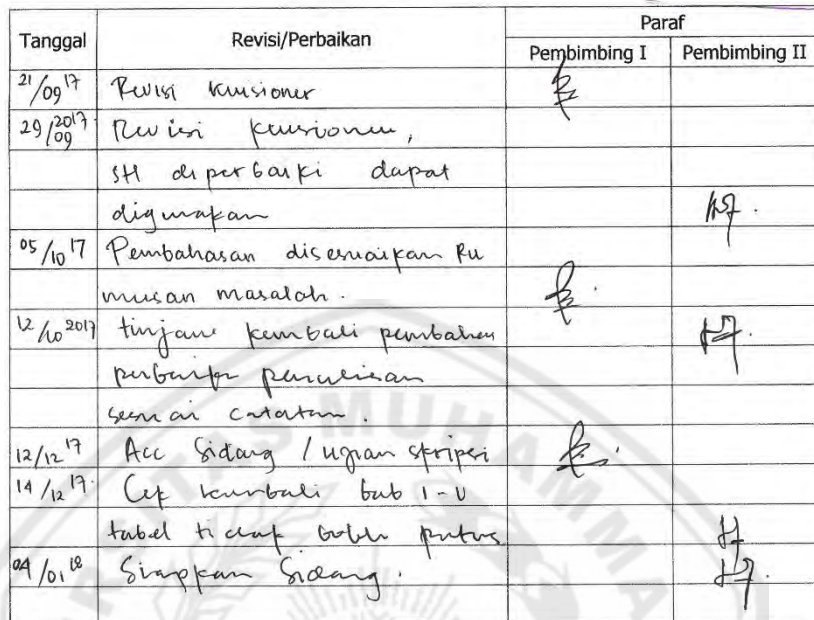 Tanggal Revisi/Perbaikan Paraf
Pembimbing I Pembimbing II
21/09 17 Revisi kuusioner
29/09 2017 Revisi kuusioner,
stl diperbaiki dapat
digunakan
05/10 17 Pembahasan disesuaikan Ru
musan masalah.
12/10 2017 tinjau kembali pembahasan
perbaiki penulisan
sesuai catatan.
12/12 17 Acc Sidang / ujian skripsi
14/12 17. Cek kembali bab I-V
tabel tidak boleh putus
04/01 18 Siapkan Sidang.
SITAS MUHAMMA